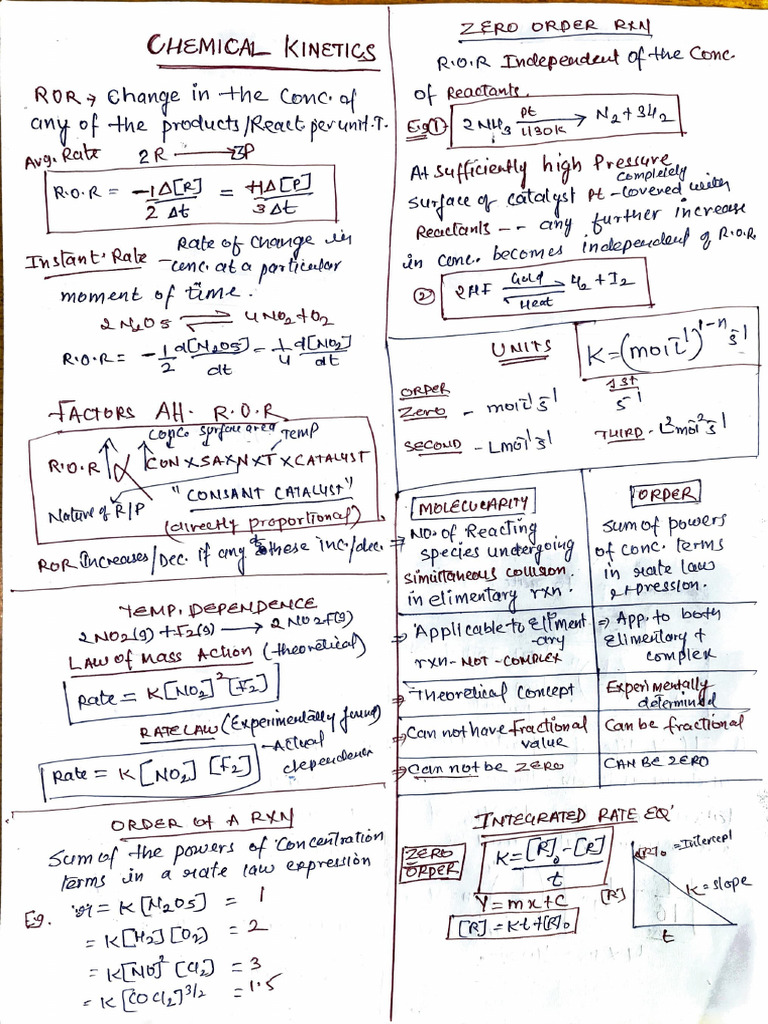 CHEMICAL KINETICS
ROR → Change in the Conc. of
any of the products/React per unit.T.
Avg. Rate 2R → 3P
R.O.R = -1Δ[R]/2Δt = +1Δ[P]/3Δt
Instant. Rate - Rate of change in
conc. at a particular
moment of time.
2N2O5 ⇌ 4NO2+O2
R.O.R = -1/2 d[N2O5]/dt = 1/4 d[NO2]/dt
FACTORS Aff. R.O.R
conc. surface area Temp
R.O.R ∝ CON×SA×N×T×CATALYST
Nature of R/P "CONSANT CATALYST"
(directly proportional)
ROR Increases/Dec. if any of these inc./dec.
TEMP. DEPENDENCE
2NO2(g) + F2(g) → 2NO2F(g)
LAW OF MASS ACTION (theoretical)
Rate = K[NO2]² [F2]
RATE LAW (Experimentally found)
-Actual
dependence
Rate = K[NO2] [F2]
ORDER of A RXN
Sum of the powers of Concentration
terms in a rate law expression
Eg. r = K[N2O5] = 1
= K[H2][O2] = 2
= K[NO]² [Cl2] = 3
= K[COCl2]3/2 = 1.5
ZERO ORDER RXN
R.O.R Independent of the Conc.
of Reactants.
Eg① 2NH3 Pt → 1130K N2+3H2
At sufficiently high Pressure
completely
surface of catalyst Pt - covered with
Reactants -- any further increase
in conc. becomes independent of R.O.R.
② 2HI Gold → Heat H2+I2
UNITS
K = (mol L⁻¹)¹⁻ⁿ s⁻¹
ORDER
ZERO - mol L⁻¹ s⁻¹
1st
s⁻¹
SECOND - L mol⁻¹ s⁻¹
THIRD - L² mol⁻² s⁻¹
MOLECULARITY
ORDER
⇒ NO. of Reacting
species undergoing
simultaneous collision
in elimentary rxn.
Sum of powers
of conc. terms
in rate law
expression.
⇒ Applicable to Eliment
-ary
rxn-NOT-COMPLEX
⇒ App. to both
Elimentary +
complex
⇒ Theoretical concept
Experimentally
determined
⇒ Can not have fractional
value
Can be fractional
⇒ Can not be ZERO
CAN BE ZERO
INTEGRATED RATE EQ'
ZERO
ORDER
K = [R]₀ - [R]/t
Y = mx + C
[R] = Kt+[R]₀
[R]₀ = Intercept
K = slope
[R]
t